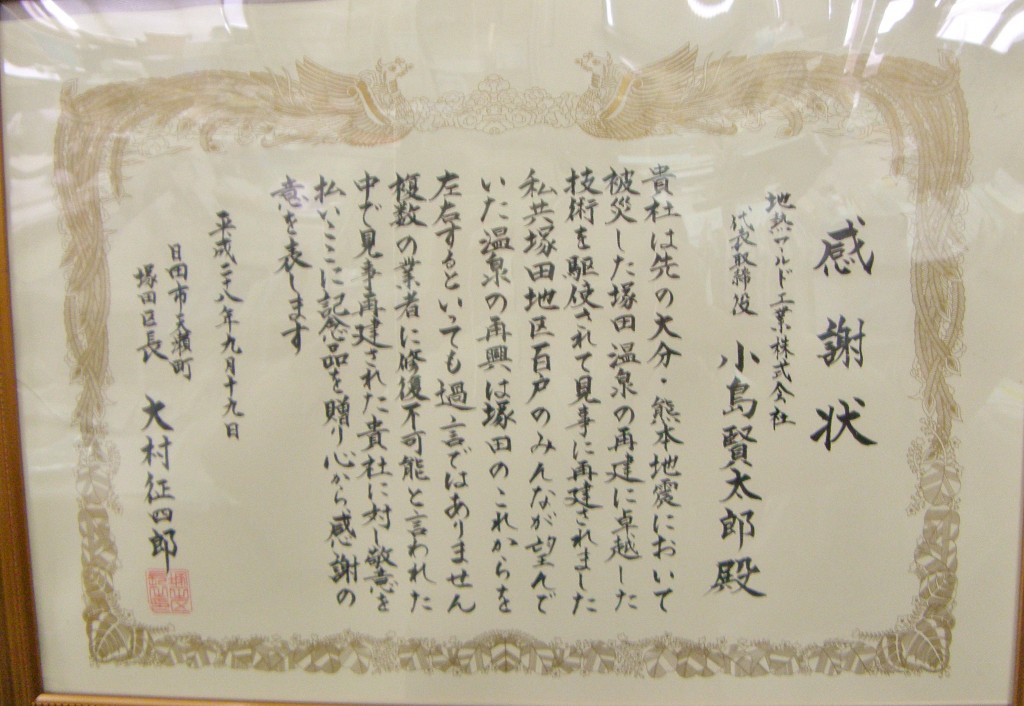 感謝状
地熱ワールド工業株式会社
代表取締役 小島賢太郎殿
貴社は先の大分・熊本地震において
被災した塚田温泉の再建に卓越した
技術を駆使されて見事に再建されました
私共塚田地区百戸のみんなが望んで
いた温泉の再興は塚田のこれからを
左右するといっても過言ではありません
複数の業者に修復不可能と言われた
中で見事再建された貴社に対し敬意を
払いここに記念品を贈り心から感謝の
意を表します
平成二十八年九月十九日
日田市天瀬町
塚田区長 大村征四郎